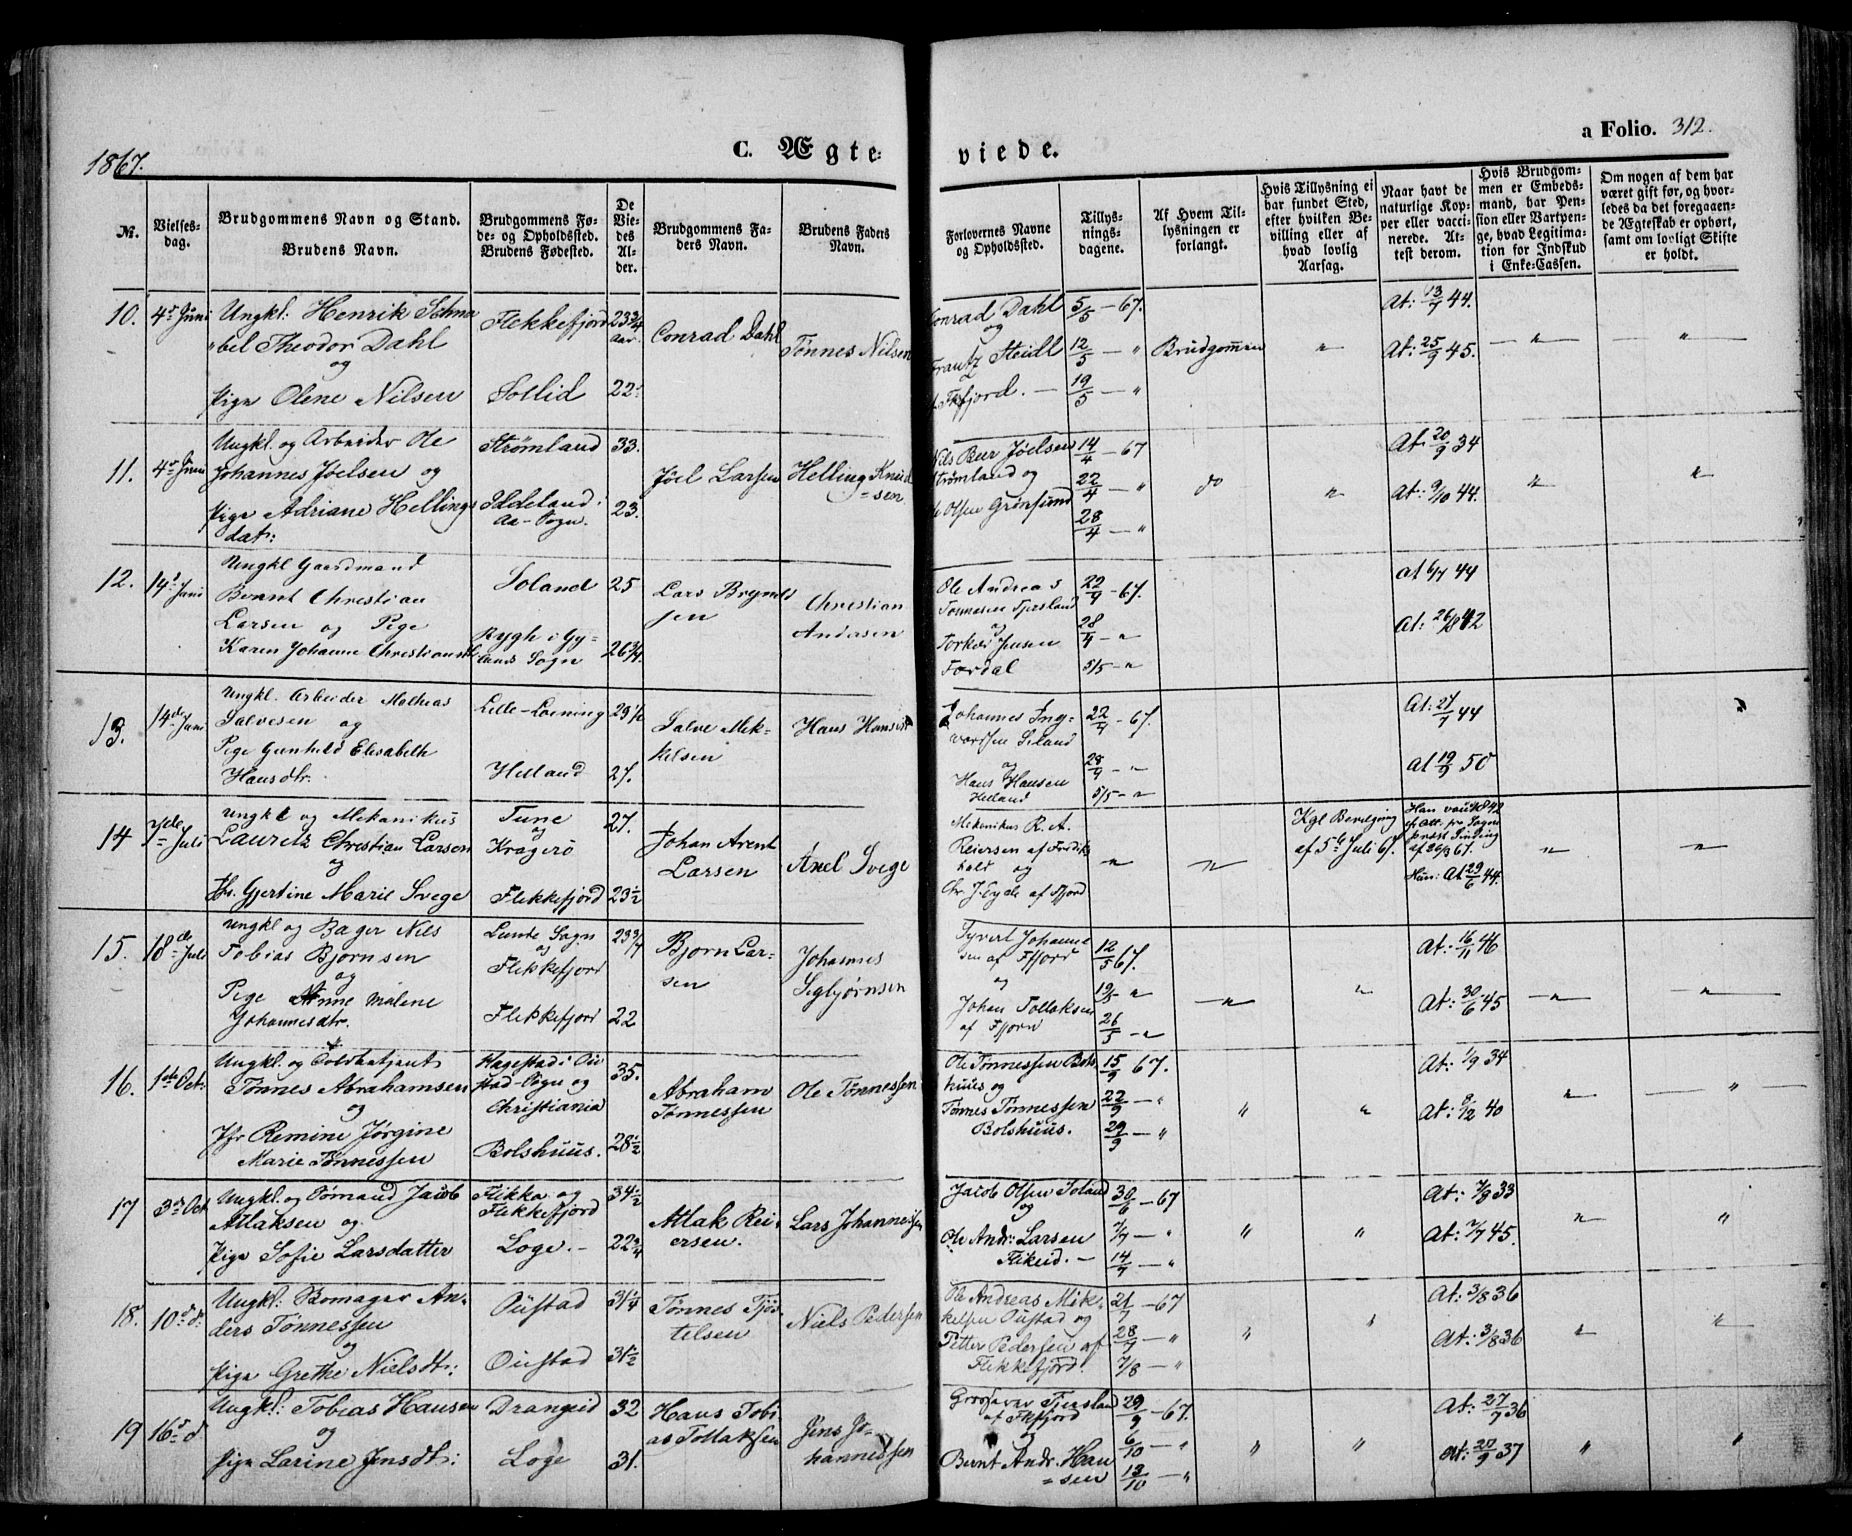 1867.
C. Ægte-
viede.
a Folio. 312.
No.
Vielses-
dag.
Brudgommens Navn og Stand.
Brudens Navn.
Brudgommens Fø-
de- og Opholdssted.
Brudens Fødested.
De
Vie-
des
Al-
der.
Brudgommens Fa-
ders Navn.
Brudens Faders
Navn.
Forlovernes Navne
og Opholdssted.
Tillys-
nings-
dagene.
Af Hvem Til-
lysningen er
forlangt.
Hvis Tillysning ei
har fundet Sted,
efter hvilken Be-
villing eller af
hvad lovlig
Aarsag.
Naar havt de
naturlige Kop-
per eller vacci-
nerede. At-
test derom.
Hvis Brudgom-
men er Embeds-
mand, har Pen-
sion eller Vartpen-
ge, hvad Legitima-
tion for Indskud
i Enke-Cassen.
Om nogen af dem har
været gift før, og hvor-
ledes da det foregaaen-
de Ægteskab er ophørt,
samt om lovligt Skifte
er holdt.
10. 4de Juni
Ungkl: Henrik Schna
bel Theodor Dahl
og
Pige Olene Nilsen
Flekkefjord
Sollid
23 3/4
aar
22
Conrad Dahl
Tønnes Nilsen
Conrad Dahl
og
Frantz Steidl
Fkfjord. —
5/5 — 67.
12/5 — "
19/5 — "
Brudgommen
"
At: 13/7 44.
At: 25/9 45.
— " —
"
11. 4de Juni
Ungkl. og Arbeider Ole
Johannes Jøelsen og
Pige Adriane Hellings
dat:
Strømland
Ildeland i
Aa-Sogn.
33.
23.
Jøel Larsen
Helling Knud
=sen
Nils Beer Jøelsen
Strømland og
Ole Olsen Grønsund
14/4 — 67
22/4 — "
28/4 — "
do
"
At 20/9 34
At: 9/10 44.
"
"
12. 14de Juni
Ungkl Gaardmand
Bernt Christian
Larsen og Pige
Karen Johanne Christiansdtr
Soland
Rygh i Gy-
lands Sogn
25
26 3/4.
Lars Bryn
sen
Christian
Andersen
Ole Andreas
Tønnesen Tjersland
og
Torkel Jensen
Fordal
22/4 — 67.
28/4 — "
5/5 — "
at 6/7 44
At: 26/8 42
13. 14de Juni
Ungkl. Arbeider Mathias
Salvesen og
Pige Gunhild Elisabeth
Hansdtr.
Lille-Løining
Helland
23 1/2
27.
Salve Mik-
kelsen
Hans Hansen
Johannes Ing-
vardsen Seland
og
Hans Hansen
Helland
22/4 — 67.
28/4 — "
5/5 — "
At: 27/7 44
at 19/9 50
14 7de Juli
Ungkl og Mekanikus
Lauretz Christian Larsen
og
Jfr. Gjertine Marie Svege
Tune
og
Kragerø
Flekkefjord
27.
23 1/2
Johan Arent
Larsen
Axel Svege
Mekanikus R. A.
Reiersen af Fredriks
hald og
Chr. J. Eyde af Ffjord
"
"
Kgl Bevilgning
af 5te Juli 67.
Han vac. 1842
ef. Att. fra Sogne
præst Finding
af 20/3 67.
Hun: At 29/6 44.
"
"
15. 18de Juli
Ungkl og Bager Nils
Tobias Bjørnsen
og
Pige Anne Malene
Johannesdtr.
Lunde Sogn
og
Flekkefjord
Flekkefjord
23 3/4
22
Bjørn Lar-
sen
Johannes
Sigbjørnsen
Syvert Johanne
sen af Ffjord
og
Johan Tollaksen
af Ffjord
12/5 67.
19/5 — "
26/5 — "
"
"
At: 16/11 46
At: 30/6 45
"
"
16. 1ste Oct.
Ungkl. og Toldbetjent
Tønnes Abrahamsen
og
Jfr Remine Jørgine
Marie Tønnessen
Hagestad i Ou
stad-Sogn og
Christiania
Bolshuus.
35.
28 1/2
Abraham
Tønnessen
Ole Tønnessen
Ole Tønnessen Bols
huus og
Tønnes Tønnessen
Bolshuus.
15/9 67.
22/9 — "
29/9 — "
"
"
At: 1/9 34
At: 9/12 40
"
"
17 3de Oct
Ungkl. og Sømand Jacob
Atlaksen og
Pige Sofie Larsdatter
Flikka og
Flekkefjord
Loge. —
34 1/2
22 3/4
Atlak Rei-
ersen.
Lars Johannessen
Jacob Olsen Soland
og
Ole Andr: Larsen
Flikeid. —
30/6 — 67
7/7 — "
14/7 — "
"
"
At: 7/9 33
At: 7/7 45.
"
"
18. 10de d:
Ungkl: Bomager An-
ders Tønnessen
og
Pige Grethe Nielsdt:
Oustad
Oustad
31 1/4
31 1/2
Tønnes Tjøs-
telsen
Niels Pedersen
Ole Andreas Mik-
kelsen Oustad og
Petter Pedersen af
Flekkefjord.
21/7 — 67
28/7 — "
7/8 — "
"
"
At: 3/8 36
At: 3/8 36
"
"
19 16de d.
Ungkl: Tobias Hansen
og
Pige Larine Jensdt:
Drangeid
Loge
32
31.
Hans Tobi-
as Tollaksen
Jens Jo-
hannessen
Tjersland
af Fkfjord
og
Bernt Andr. Han
=sen
29/9 — 67.
6/10 — "
13/10 — "
"
"
At: 27/7 36
At: 20/9 37
"
"